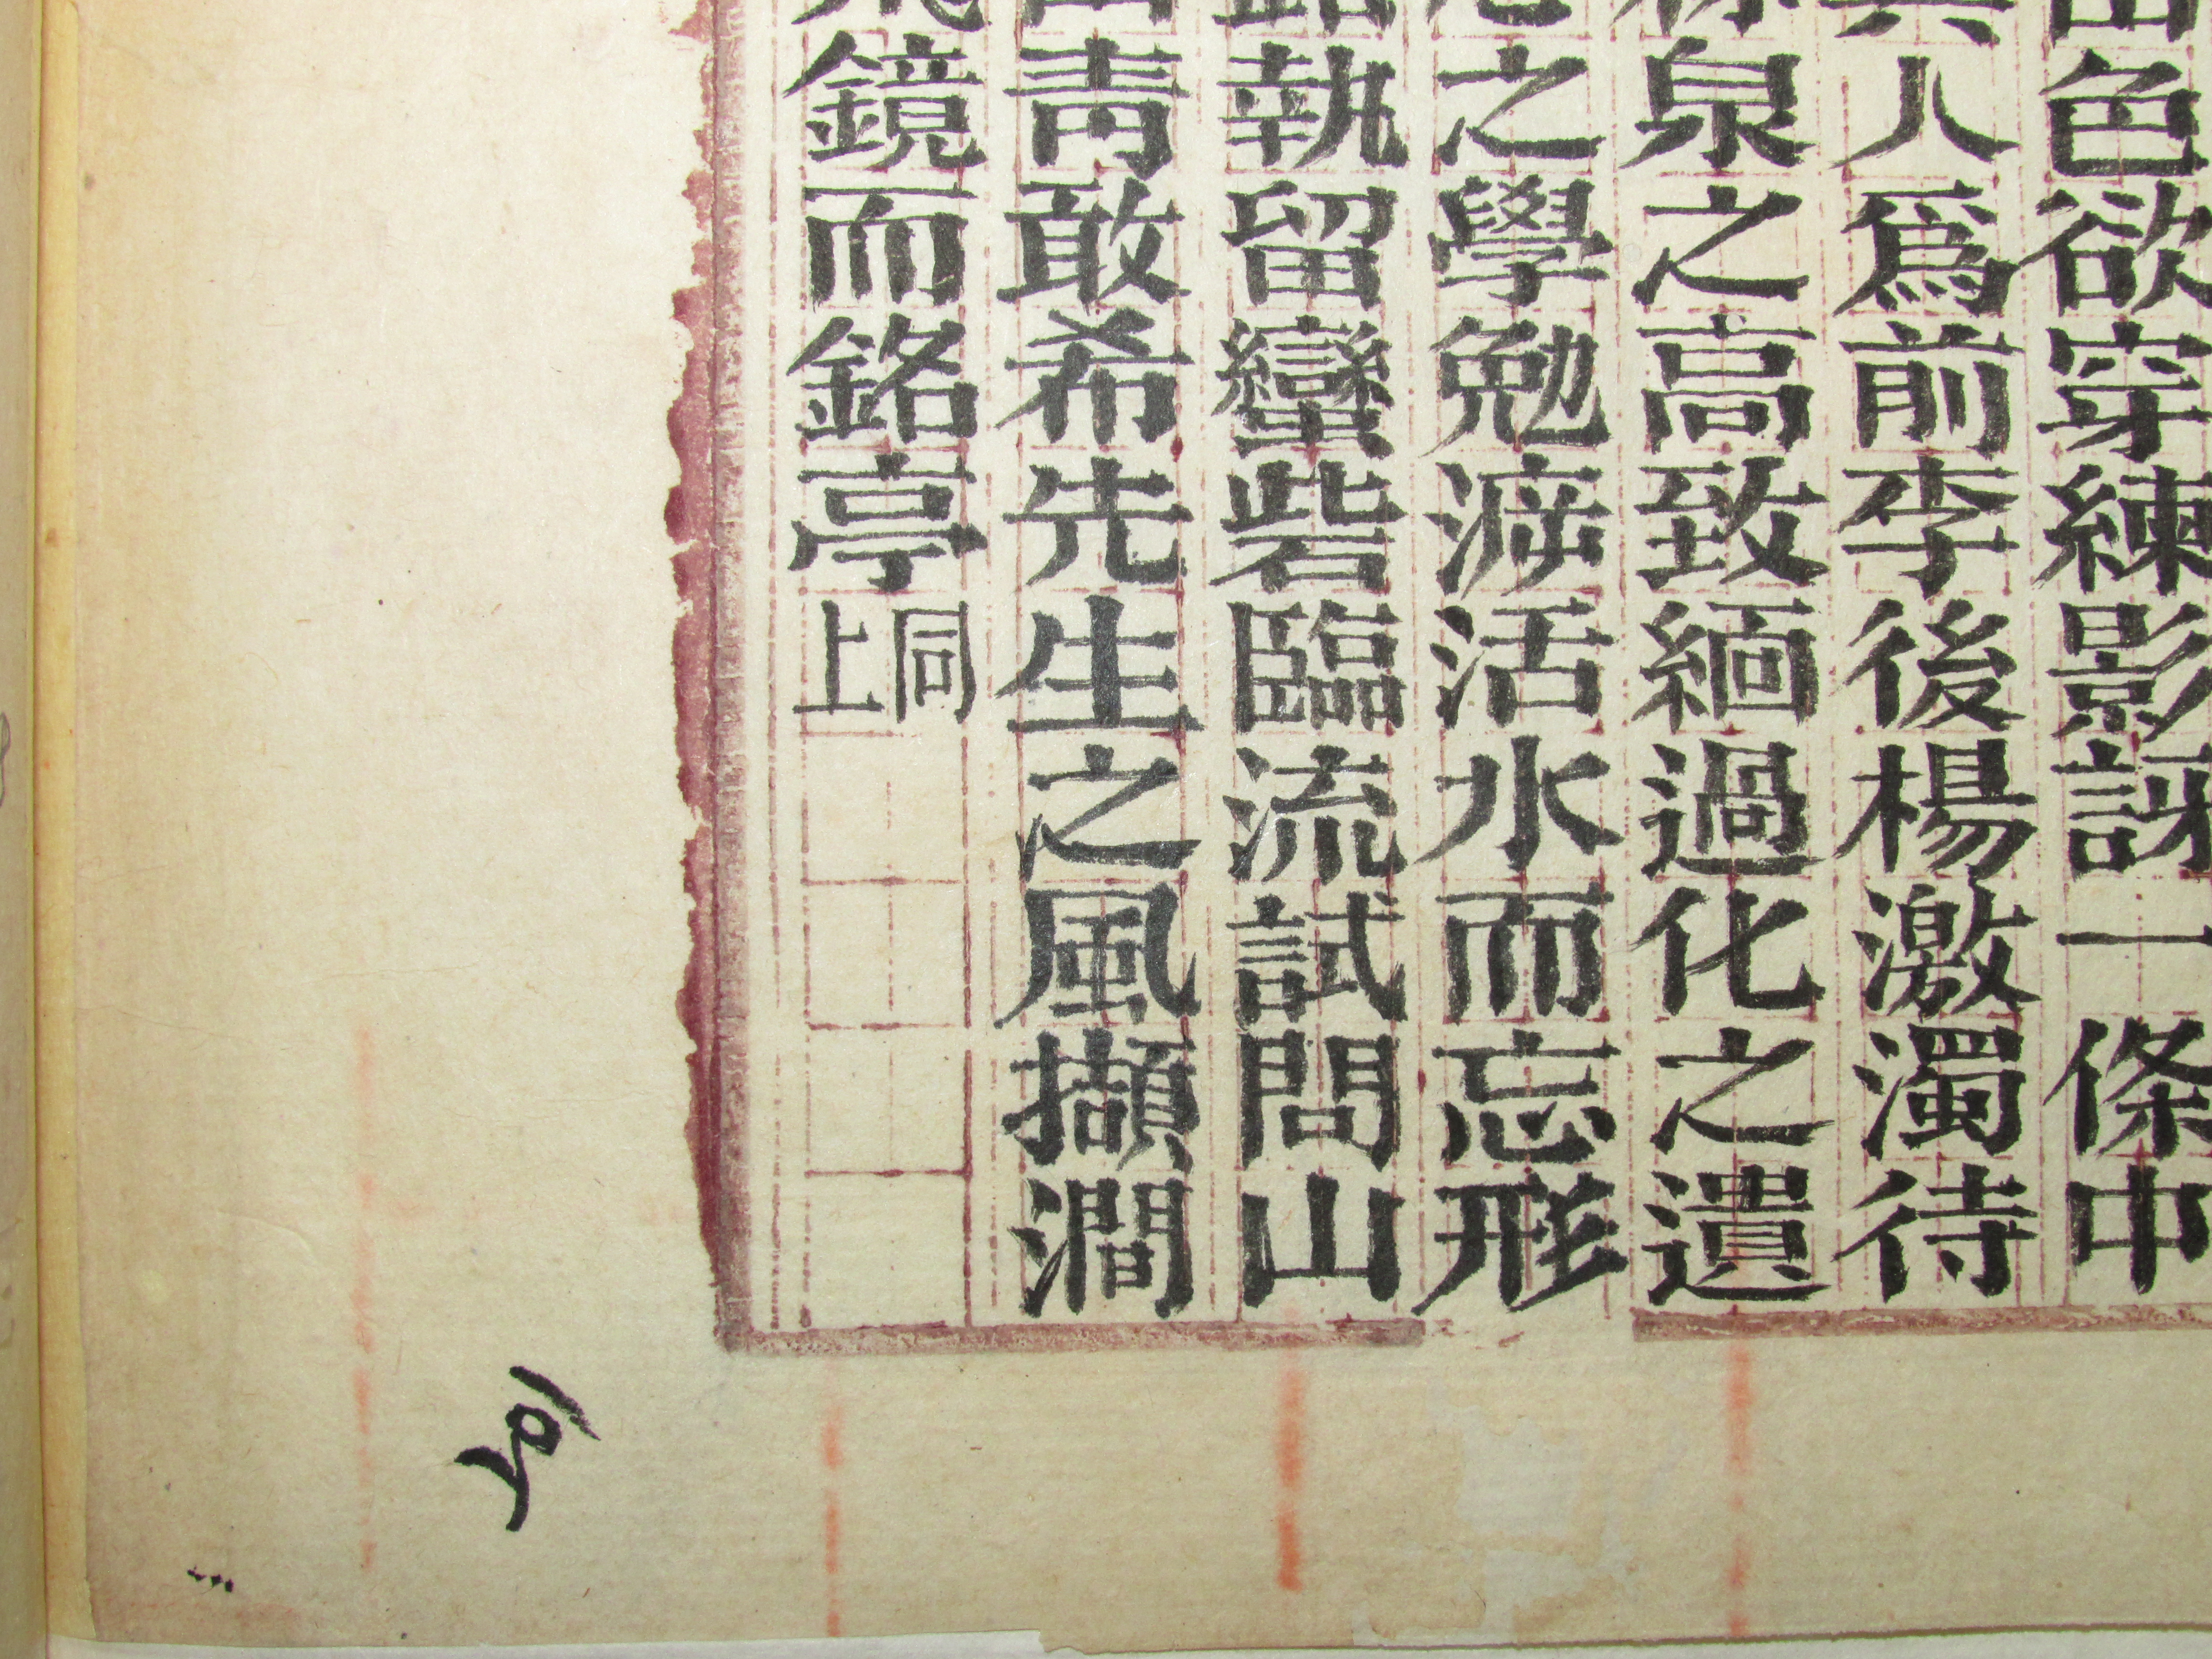 色欲穿練影訝一條中
人爲前李後楊激濁待
泉之高致緬過化之遺
之學勉游活水而忘形
執留蠻砦臨流試問山
靑敢希先生之風擷澗
鏡而銘亭同上